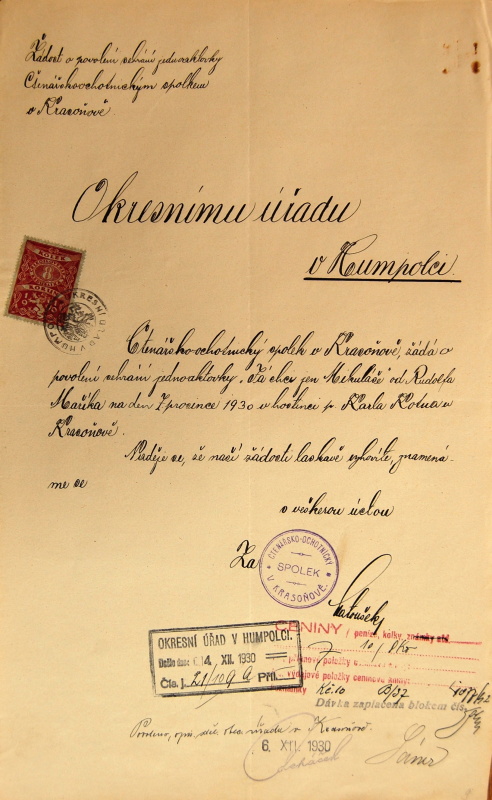 Žádost o povolení sehrání jednoaktovky
Čtenářsko-ochotnickým spolkem
v Krasoňově.
Okresnímu úřadu
v Humpolci.
OKRESNÍ ÚŘAD V HUMPOLCI
8
Čtenářsko-ochotnický spolek v Krasoňově, žádá o
povolení sehrání jednoaktovky „Já chci jen Mikuláše" od Rudolfa
Maříka na den 7 prosince 1930 v hostinci p. Karla Kotna v
Krasoňově.
Naděje se, že naší žádosti laskavě vyhovíte, znamená-
me se
v veškerou úctou
Za
ČTENÁŘSKO-OCHOTNICKÝ
SPOLEK
V KRASOŇOVĚ.
Matoušek
CENINY / peníze, kolky, známky atd.
7 10/
položky
výdajové položky ceninové
Kč 10
Dávka zaplacena blokem čís.
OKRESNÍ ÚŘAD V HUMPOLCI.
Došlo dne: 4. XII. 1930
Čís. j. 21/109 a Příl.
Povoleno, obec. úřadu v Krasoňově.
6. XII. 1930